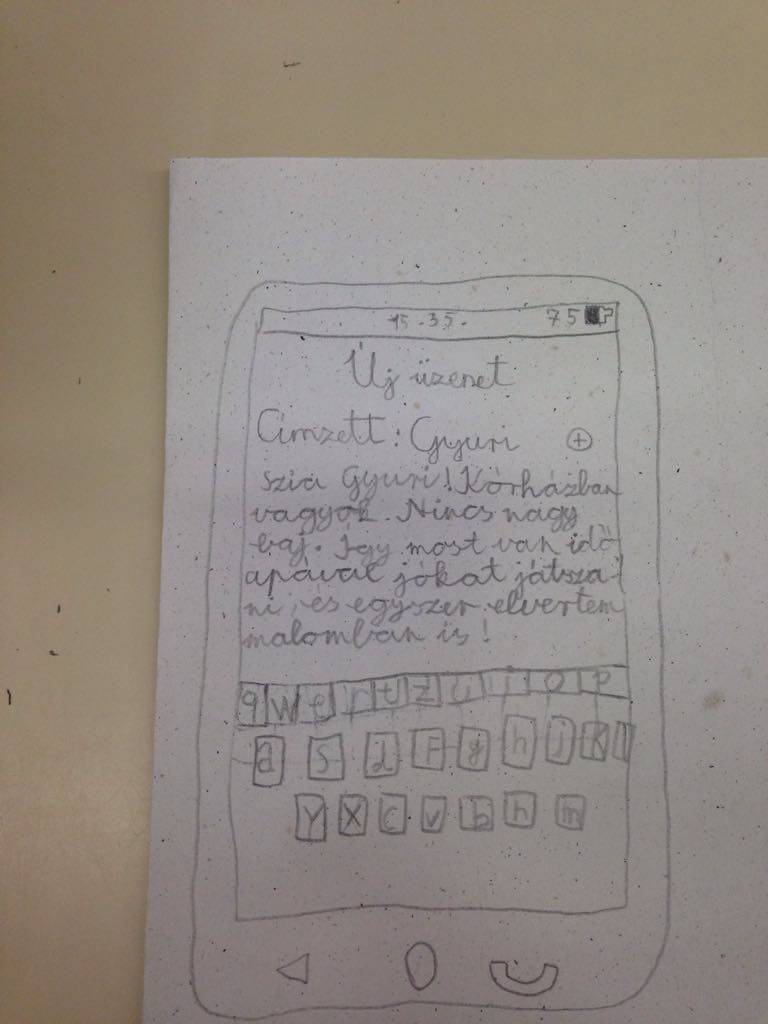 15.35.
75
Új üzenet
Címzett: Gyuri +
szia Gyuri! Kórházban
vagyok. Nincs nagy
baj. Így most van idő
apával jókat játsza-
ni, és egyszer elvertem
malomban is!
q w e r t z u i o p
a s d F g h j k l
Y X c v b n m